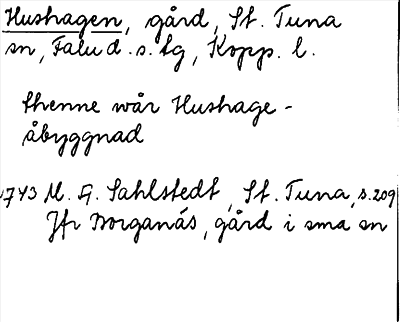 Hushagen, gård, St. Tuna
sn, Falu d. s. lg, Kopp. l.
thenne wår Hushage-
åbyggnad
1743 M. G. Sahlstedt, St. Tuna, s. 209
Jfr Borganäs, gård i sma sn